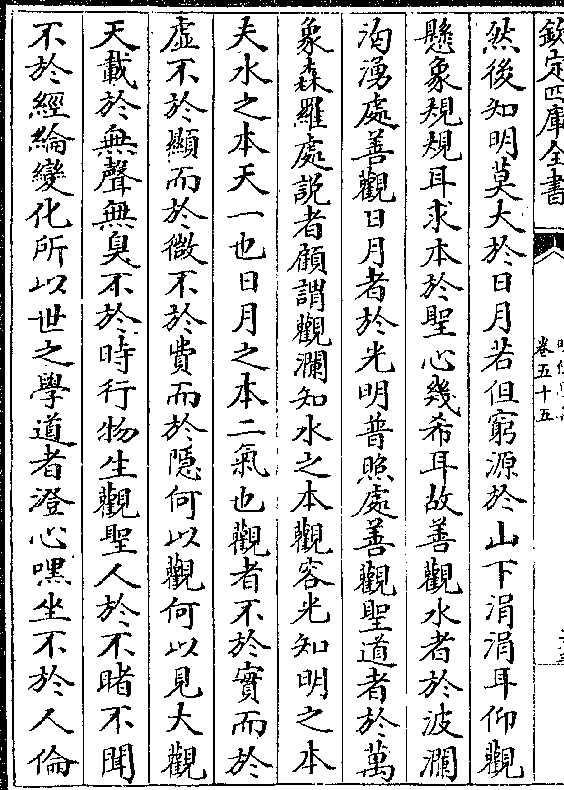 欽定四庫全書
卷五十五
然後知明莫大於日月若但窮源於山下涓涓耳仰觀
懸象規規耳求本於聖心幾希耳故善觀水者於波瀾
洶湧處善觀日月者於光明普照處善觀聖道者於萬
象森羅處説者顧謂觀瀾知水之本觀容光知明之本
夫水之本天一也日月之本二氣也觀者不於實而於
虛不於顯而於微不於費而於隱何以觀何以見大觀
天載於無聲無臭不於時行物生觀聖人於不睹不聞
不於經綸變化所以世之學道者澄心嘿坐不於人倫